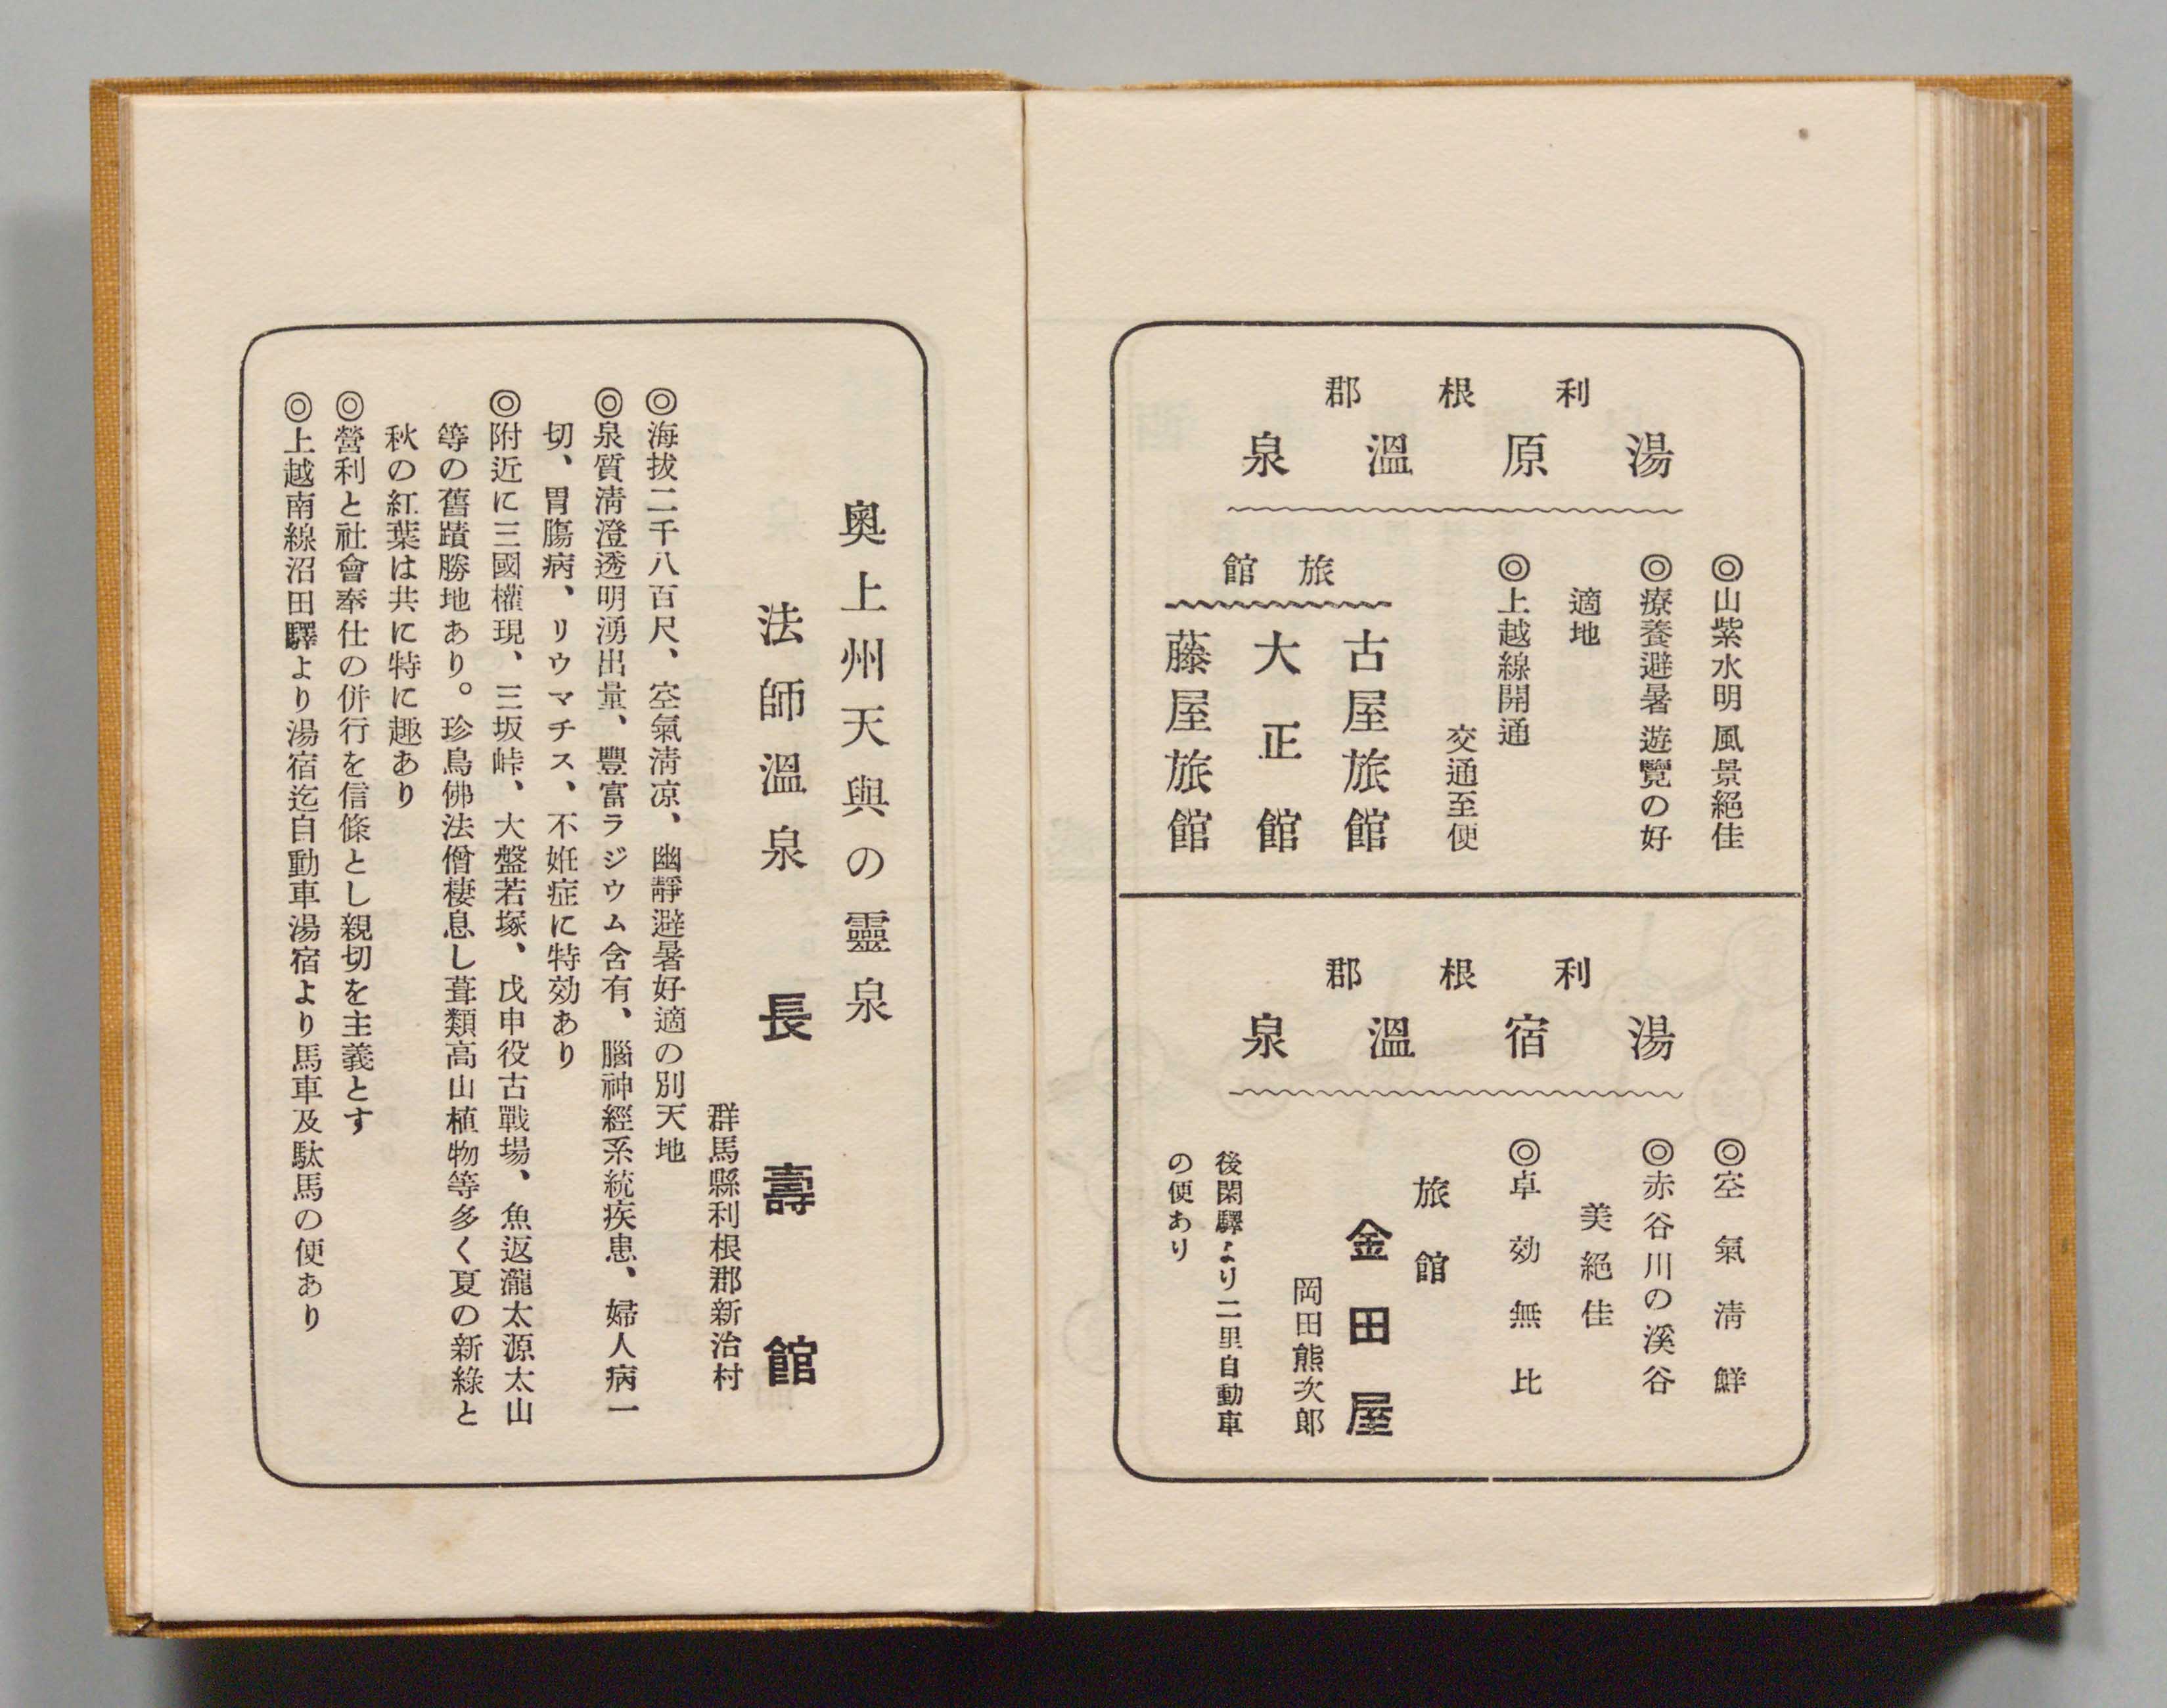 利根郡
湯原溫泉
◎山紫水明風景絕佳
◎療養避暑遊覽の好
適地
◎上越線開通
交通至便
旅館
古屋旅館
大正館
藤屋旅館
利根郡
湯宿溫泉
◎空氣淸鮮
◎赤谷川の溪谷
美絕佳
◎卓効無比
旅館
金田屋
岡田熊次郞
後閑驛より二里自動車
の便あり
奧上州天與の靈泉
法師溫泉 長壽館
群馬縣利根郡新治村
◎海拔二千八百尺、空氣淸凉、幽靜避暑好適の別天地
◎泉質淸澄透明湧出量、豐富ラジウム含有、腦神經系統疾患、婦人病一
切、胃膓病、リウマチス、不姙症に特効あり
◎附近に三國權現、三坂峠、大盤若塚、戊申役古戰場、魚返瀧太源太山
等の舊蹟勝地あり。珍鳥佛法僧棲息し葺類高山植物等多く夏の新綠と
秋の紅葉は共に特に趣あり
◎營利と社會奉仕の併行を信條とし親切を主義とす
◎上越南線沼田驛より湯宿迄自動車湯宿より馬車及駄馬の便あり